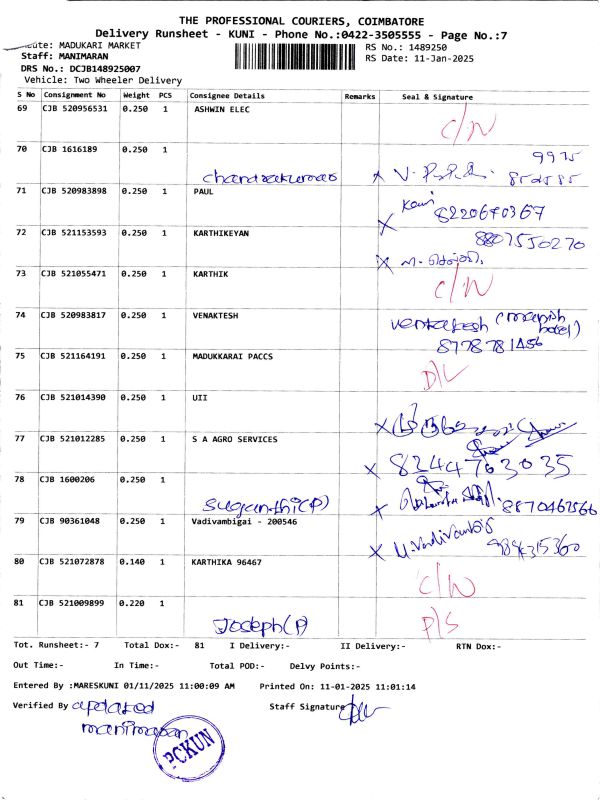 THE PROFESSIONAL COURIERS, COIMBATORE
Delivery Runsheet - KUNI - Phone No.:0422-3505555 - Page No.:7
MADUKARI MARKET RS No.: 1489250
Staff: MANIMARAN RS Date: 11-Jan-2025
DRS No.: DCJB148925007
Vehicle: Two Wheeler Delivery
S No Consignment No Weight PCS Consignee Details Remarks Seal & Signature
69 CJB 520956531 0.250 1 ASHWIN ELEC
70 CJB 1616189 0.250 1
Chandrakumar
71 CJB 520983898 0.250 1 PAUL
8220640367
72 CJB 521153593 0.250 1 KARTHIKEYAN
73 CJB 521055471 0.250 1 KARTHIK
74 CJB 520983817 0.250 1 VENAKTESH
Venkatesh (manish hotel)
8778781456
75 CJB 521164191 0.250 1 MADUKKARAI PACCS
D/L
76 CJB 521014390 0.250 1 UII
77 CJB 521012285 0.250 1 S A AGRO SERVICES
8244763035
78 CJB 1600206 0.250 1
Suganthi(P)
79 CJB 90361048 0.250 1 Vadivambigai - 200546
80 CJB 521072878 0.140 1 KARTHIKA 96467
81 CJB 521009899 0.220 1
Joseph(P) P/S
Tot. Runsheet:- 7 Total Dox:- 81 I Delivery:- II Delivery:- RTN Dox:-
Out Time:- In Time:- Total POD:- Delvy Points:-
Entered By :MARESKUNI 01/11/2025 11:00:09 AM Printed On: 11-01-2025 11:01:14
Verified By updated Staff Signature
manimaran
PCKUN